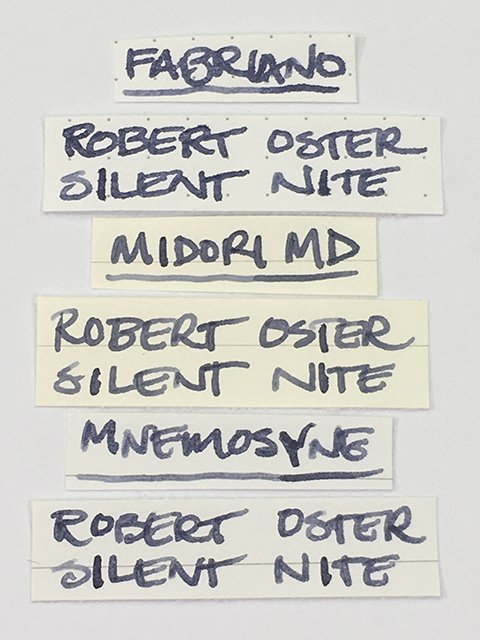 FABRIANO
ROBERT OSTER
SILENT NITE
MIDORI MD
ROBERT OSTER
SILENT NITE
MNEMOSYNE
ROBERT OSTER
SILENT NITE